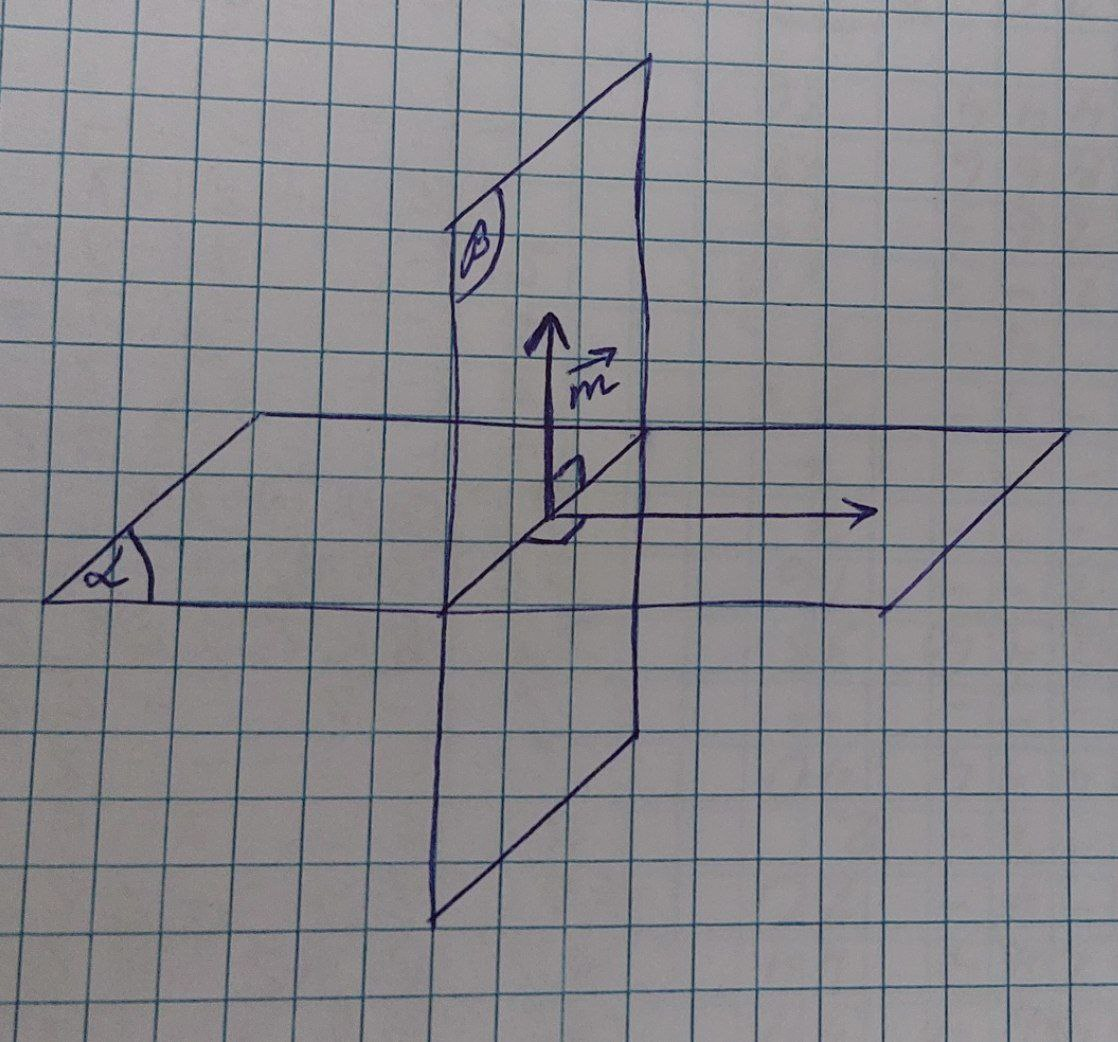 β
m⃗
α